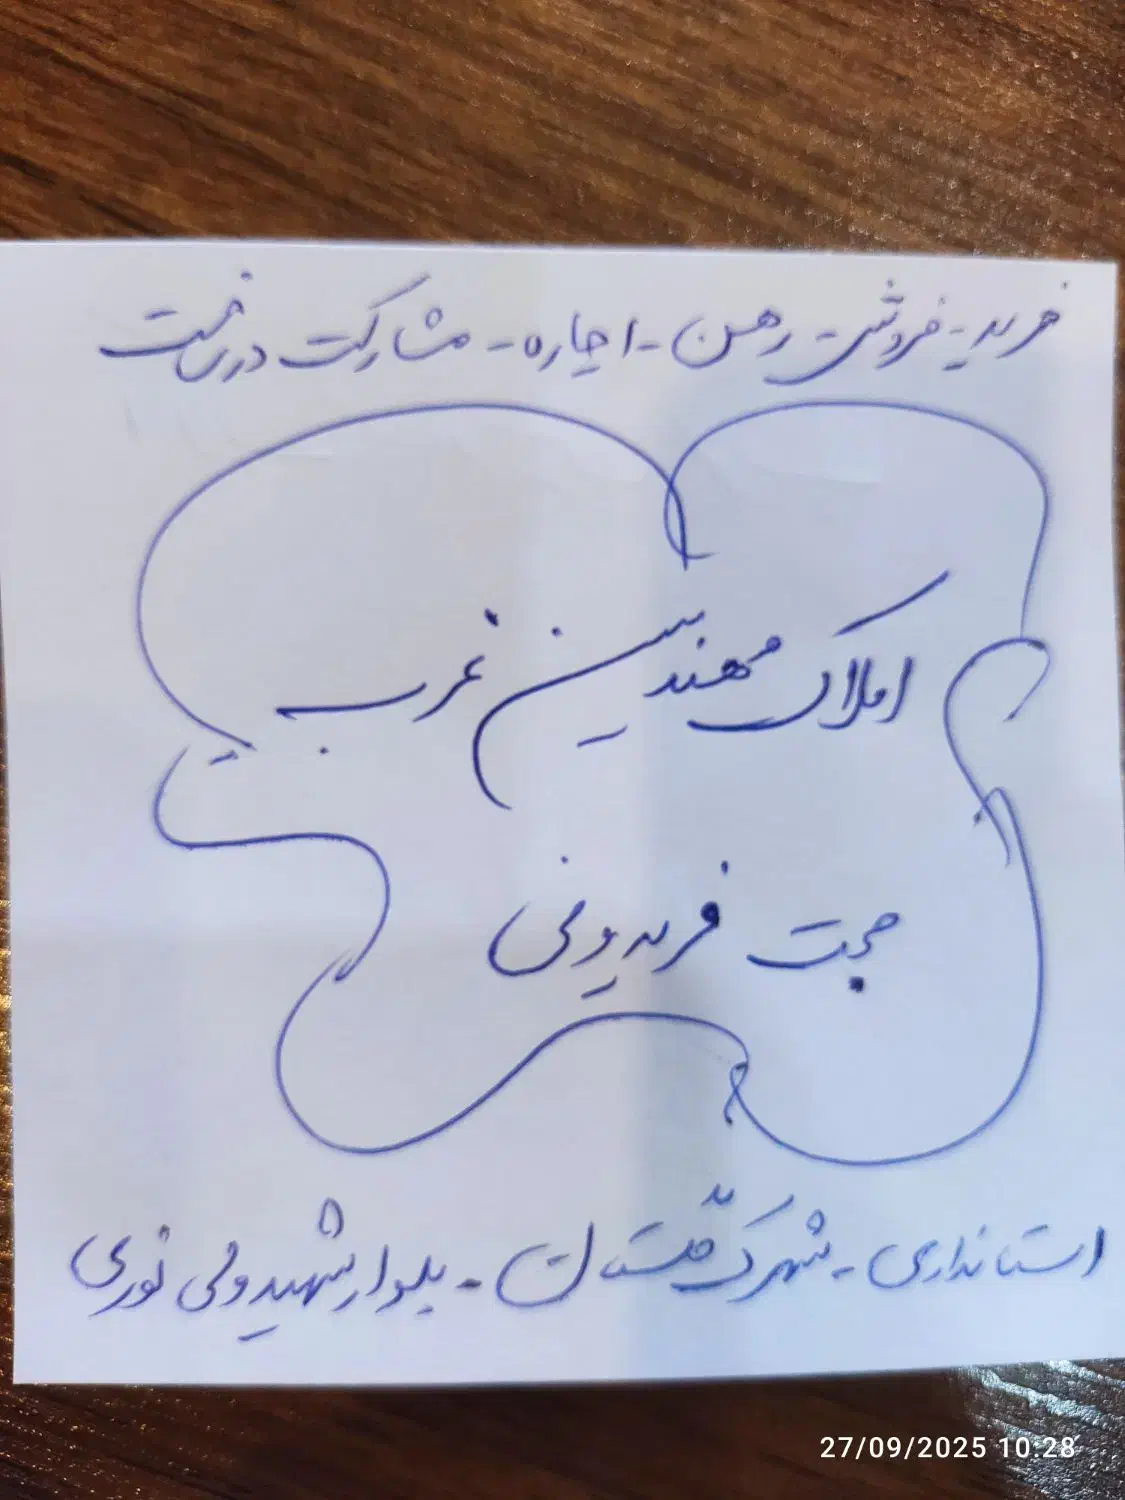 خرید - فروش - رهن - اجاره - مشارکت در ساخت
املاک مهندسین غرب
حجت فریدونی
استانداری - شهرک - بلوار شهید ولی نوری
27/09/2025 10:28